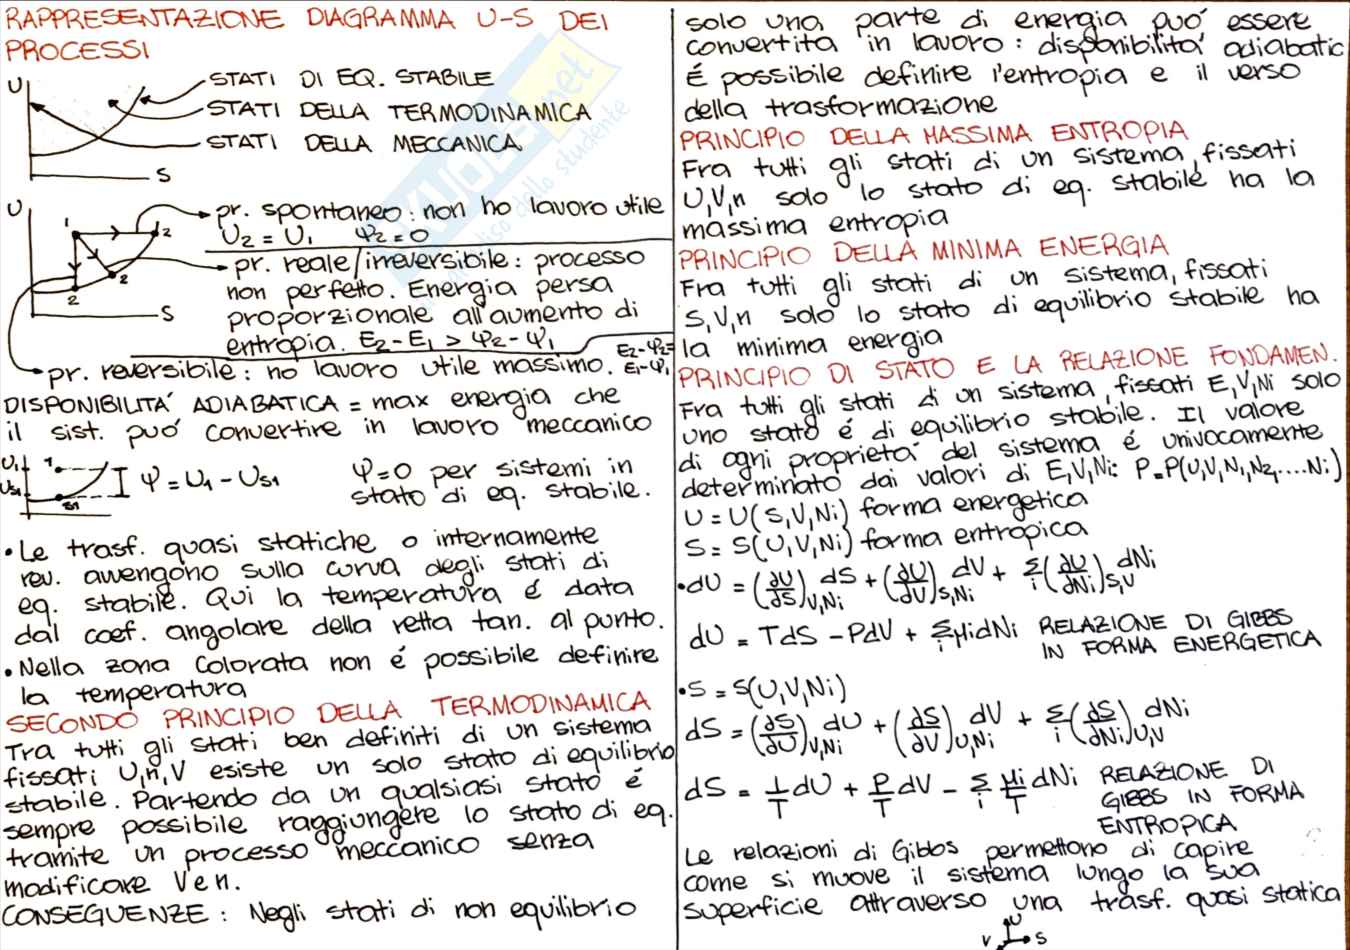 RAPPRESENTAZIONE DIAGRAMMA U-S DEI
PROCESSI
U
STATI DI EQ. STABILE
STATI DELLA TERMODINAMICA
STATI DELLA MECCANICA
S
U
1
2
2
2
S
pr. spontaneo: non ho lavoro utile
U2 = U1 Ψ2 = 0
pr. reale/irreversibile: processo
non perfetto. Energia persa
proporzionale all'aumento di
entropia. E2-E1 > Ψ2-Ψ1
pr. reversibile: ho lavoro utile massimo.
E2-Ψ2=
E1-Ψ1
DISPONIBILITA' ADIABATICA = max energia che
il sist. puó convertire in lavoro meccanico
U1
US1
1
S1
Ψ = U1 - US1
Ψ=0 per sistemi in
stato di eq. stabile.
• Le trasf. quasi statiche o internamente
rev. avvengono sulla curva degli stati di
eq. stabile. Qui la temperatura é data
dal coef. angolare della retta tan. al punto.
• Nella zona colorata non é possibile definire
la temperatura
SECONDO PRINCIPIO DELLA TERMODINAMICA
Tra tutti gli stati ben definiti di un sistema
fissati U,n,V esiste un solo stato di equilibrio
stabile. Partendo da un qualsiasi stato é
sempre possibile raggiungere lo stato di eq.
tramite un processo meccanico senza
modificare V e n.
CONSEGUENZE: Negli stati di non equilibrio
solo una parte di energia puó essere
convertita in lavoro: disponibilitá adiabatic
É possibile definire l'entropia e il verso
della trasformazione
PRINCIPIO DELLA MASSIMA ENTROPIA
Fra tutti gli stati di un sistema, fissati
U,V,n solo lo stato di eq. stabile ha la
massima entropia
PRINCIPIO DELLA MINIMA ENERGIA
Fra tutti gli stati di un sistema, fissati
S,V,n solo lo stato di equilibrio stabile ha
la minima energia
PRINCIPIO DI STATO E LA RELAZIONE FONDAMEN.
Fra tutti gli stati di un sistema, fissati E,V,Ni solo
uno stato é di equilibrio stabile. Il valore
di ogni proprietá del sistema é univocamente
determinato dai valori di E,V,Ni: P=P(U,V,N1,N2,....Ni)
U = U(S,V,Ni) forma energetica
S = S(U,V,Ni) forma entropica
• dU = (∂U/∂S)V,Ni dS + (∂U/∂V)S,Ni dV + Σi(∂U/∂Ni)S,V dNi
dU = TdS - PdV + Σi μidNi RELAZIONE DI GIBBS
IN FORMA ENERGETICA
• S = S(U,V,Ni)
dS = (∂S/∂U)V,Ni dU + (∂S/∂V)U,Ni dV + Σi(∂S/∂Ni)U,V dNi
dS = 1/T dU + P/T dV - Σi μi/T dNi RELAZIONE DI
GIBBS IN FORMA
ENTROPICA
Le relazioni di Gibbs permettono di capire
come si muove il sistema lungo la sua
superficie attraverso una trasf. quasi statica
U
V
S